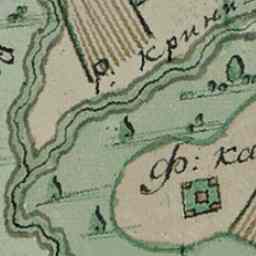 р: крини
ф: ка